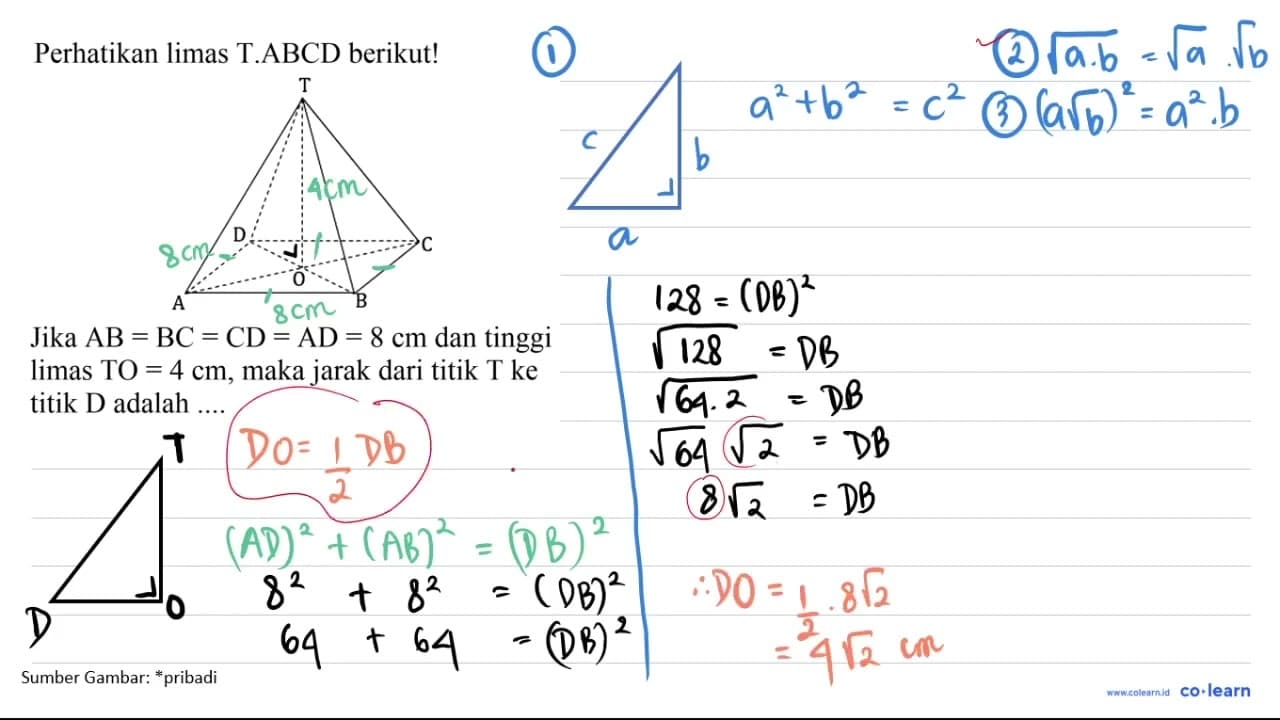 Perhatikan limas T.ABCD berikut!
T
4cm
D
8cm
C
O
A
8cm
B
Jika AB = BC = CD = AD = 8 cm dan tinggi
limas TO = 4 cm, maka jarak dari titik T ke
titik D adalah ....
T
D
O
DO = 1/2 DB
(AD)² + (AB)² = (DB)²
8² + 8² = (DB)²
64 + 64 = (DB)²
Sumber Gambar: *pribadi
①
c
b
a
a² + b² = c²
② √a.b = √a . √b
③ (a√b)² = a² . b
128 = (DB)²
√128 = DB
√64.2 = DB
√64 √2 = DB
8√2 = DB
∴ DO = 1/2 . 8√2
= 4√2 cm
www.colearn.id co·learn